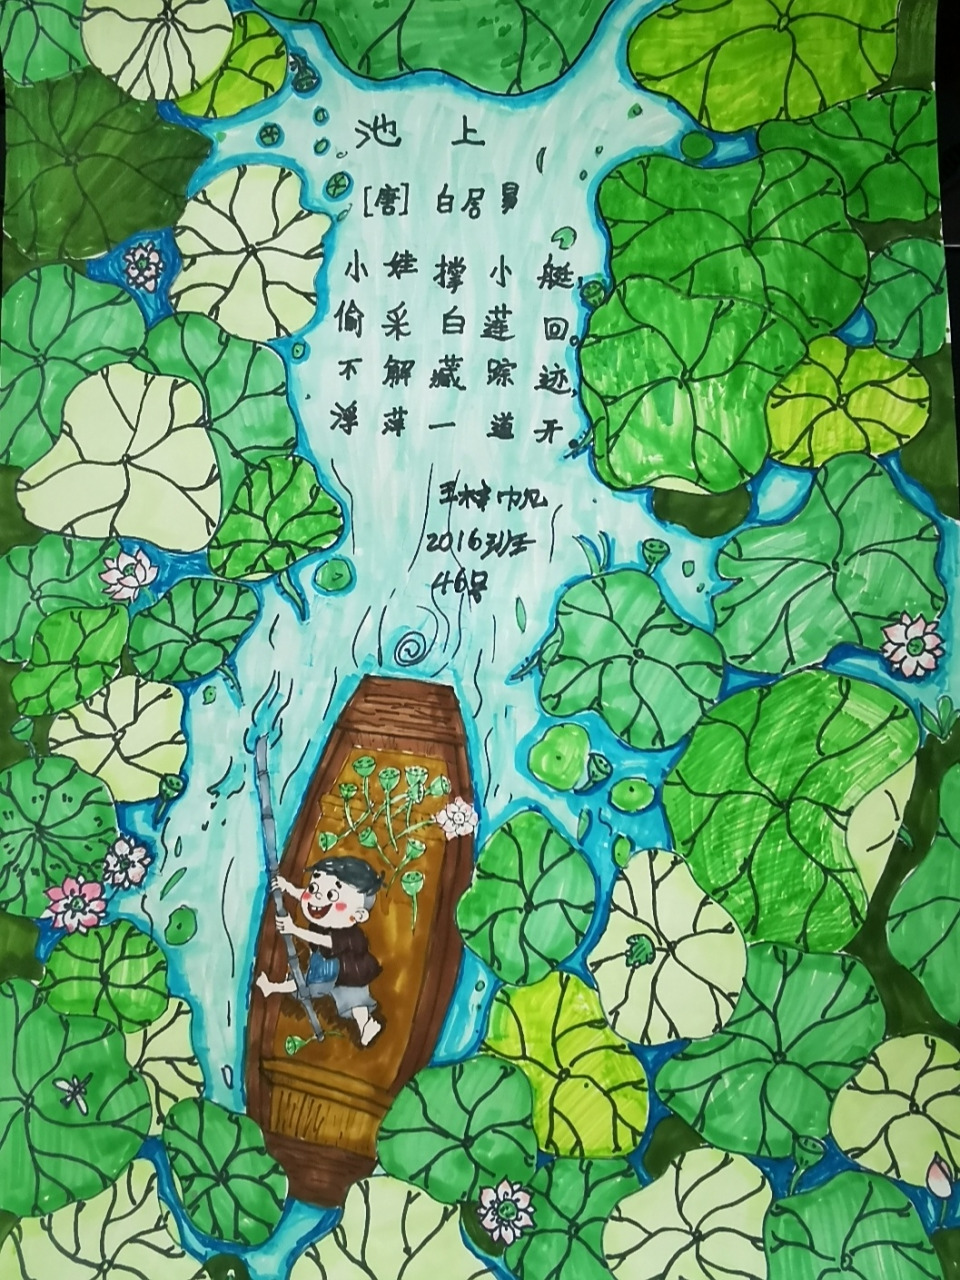 池上
[唐] 白居易
小娃撑小艇,
偷采白莲回。
不解藏踪迹,
浮萍一道开
2016班
46号